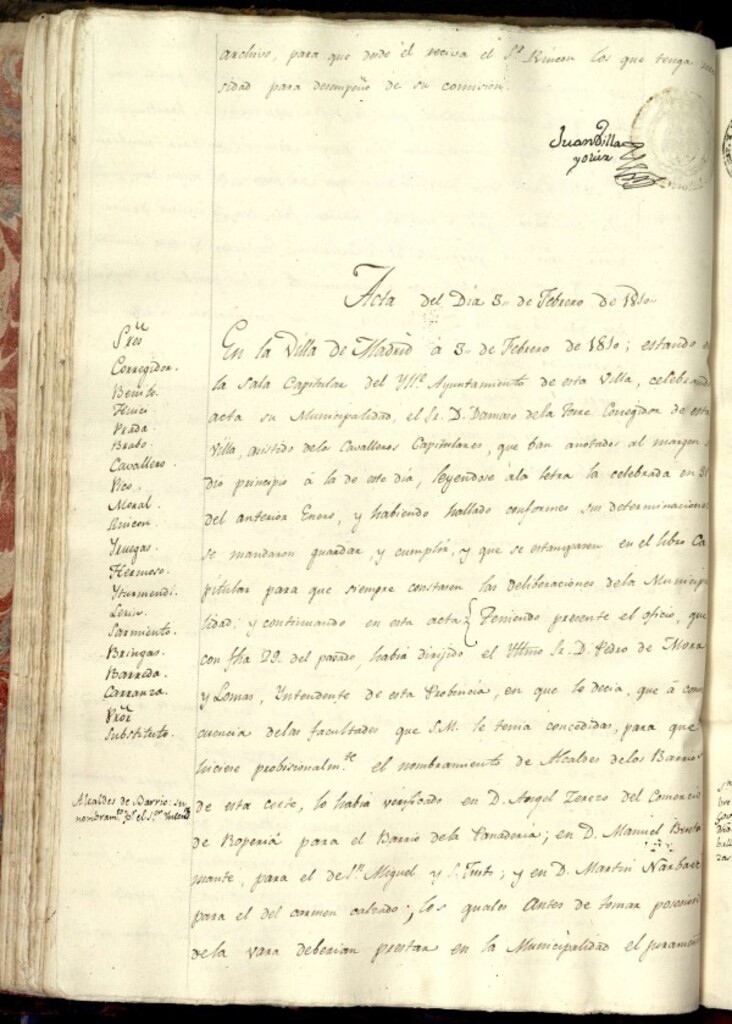 archivo, para que desde el reciva el S.r Rincon los que tenga
sidad para desempeño de su comision.
Juan Villa
y olier
Acta del Dia 3 de Febrero de 1810
S.res
Corregidor.
Benito.
Prada.
Brabo.
Cavallero.
Pico.
Moral.
Rincon.
Yruegas.
Hermoso.
Yturmendi.
Leria.
Sarmiento.
Bringas.
Barreda.
Carranza.
Pror
Substituto.
En la Villa de Madrid à 3 de Febrero de 1810; estando
la Sala Capitular del Yll.e Ayuntamiento de esta Villa, celebrando
acta su Municipalidad, el Sr. D. Damaso dela Torre Corregidor de esta
Villa, asistido delos Cavalleros Capitulares, que ban anotados al margen
dio principio à la de este dia, leyendose àla letra la celebrada en 31
del anterior Enero, y habiendo hallado conformes sus determinaciones
se mandaron guardar, y cumplir, y que se estampasen en el libro Ca
pitular para que siempre constasen las deliberaciones dela Municipa
lidad; y continuando en esta acta { Teniendo presente el oficio, que
con fha 29. del pasado, habia dirijido el Yltmo Sr. D. Pedro de Mora
y Lomas, Yntendente de esta Probincia, en que le decia, que à con
cuencia delas facultades que S.M. le tenia concedidas, para que
hiciese probisionalm.te el nombramiento de Alcaldes delos Barrios
Alcaldes de Barrio: su
nombram.to p.r el S.or Yntend.te
de esta corte, lo habia verificado en D. Angel Zerezo del Comercio
de Roperia para el Barrio dela Panaderia; en D. Manuel Busta
mante, para el de S.n Miguel y S. Justo; y en D. Martin Narbaez
para el del carmen calzado; los quales antes de tomar posesion
dela vara deberian prestar en la Municipalidad el juramento